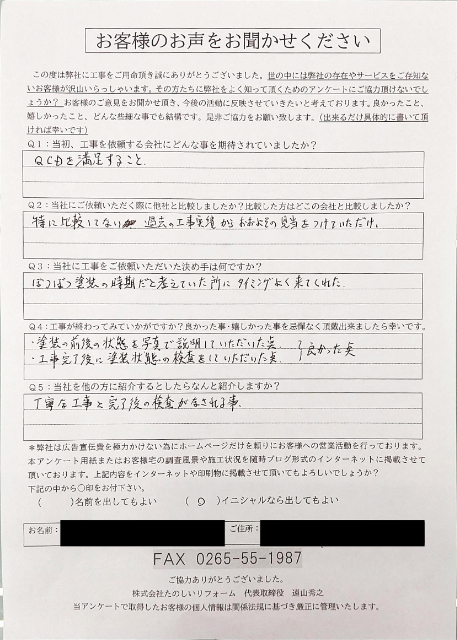 お客様のお声をお聞かせください
この度は弊社に工事をご用命頂き誠にありがとうございました。世の中には弊社の存在やサービスをご存知な
いお客様が沢山いらっしゃいます。その方たちに弊社をよく知って頂くためのアンケートにご協力頂けないで
しょうか？お客様のご意見をお聞かせ頂き、今後の活動に反映させていきたいと考えております。良かったこと、
嬉しかったこと、どんな些細な事でも結構です。是非ご協力をお願い致します。（出来るだけ具体的に書いて頂
ければ幸いです）
Q1：当初、工事を依頼する会社にどんな事を期待されていましたか？
QCDを満足すること.
Q2：当社にご依頼いただく際に他社と比較しましたか？比較した方はどこの会社と比較しましたか？
特に比較してない 過去の工事実績からおおよその見当をつけていただけ。
Q3：当社に工事をご依頼いただいた決め手は何ですか？
ぼつぼつ塗装の時期だと考えていた所にタイミングよく来てくれた.
Q4：工事が終わってみていかがですか？良かった事・嬉しかった事を忌憚なく頂戴出来ましたら幸いです。
・塗装の前後の状態を写真で説明していただいた点
・工事完了後に塗装状態の検査をしていただいた点 良かった点
Q5：当社を他の方に紹介するとしたらなんと紹介しますか？
丁寧な工事と完了後の検査がなされる事.
＊弊社は広告宣伝費を極力かけない為にホームページだけを頼りにお客様への営業活動を行っております。
本アンケート用紙またはお客様宅の調査風景や施工状況を随時ブログ形式のインターネットに掲載させて
頂いております。上記内容をインターネットや印刷物に掲載させて頂いてもよろしいでしょうか？
下記の中から○印をお付下さい。
（　　）名前を出してもよい　（ ○ ）イニシャルなら出してもよい
お名前： ご住所：
FAX 0265-55-1987
ご協力ありがとうございました。
株式会社たのしいリフォーム 代表取締役 遠山秀之
当アンケートで取得したお客様の個人情報は関係法規に基づき厳正に管理いたします。